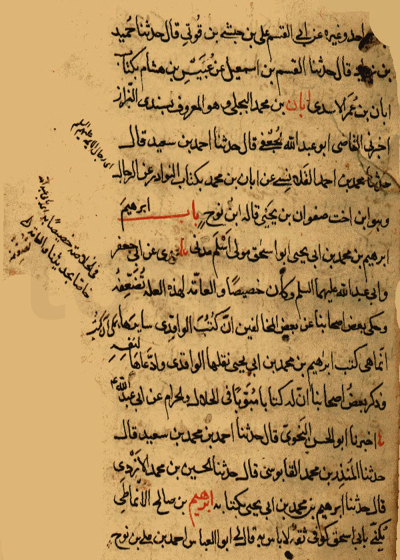 احمد وغيره عن ابي القسم علي بن حبشي بن قوني قال حدثنا حميد
بن زياد قال حدثنا القسم بن اسمعيل عن عبيس بن هشام كتاب
ابان بن عمر الاسدي ابان بن محمد البجلي وهو المعروف بسندي البزاز
اخبرني القاضي ابو عبد الله الجعفي قال حدثنا احمد بن سعيد قال
حدثنا محمد بن احمد القلانسي عن ابان بن محمد بكتاب النوادر عن الرجال
وهو ابن اخت صفوان بن يحيى قاله ابن نوح باب ابرهيم
ابرهيم بن محمد بن ابي يحيى ابو اسحق مولى اسلم مدني روى عن ابي جعفر
وابي عبد الله عليهما السلم وكان خصيصا والعامة لهذه العلة تضعفه
وحكى بعض اصحابنا عن بعض المخالفين ان كتب الواقدي سايرها
انما هي كتب ابرهيم بن محمد بن ابي يحيى نقلها الواقدي وادعاها لنفسه
وذكر بعض اصحابنا ان له كتابا مبوبا في الحلال والحرام عن ابي عبد الله
اخبرنا ابو الحسن النحوي قال حدثنا احمد بن محمد بن سعيد قال
حدثنا المنذر بن محمد القابوسي قال حدثنا الحسين بن محمد الازدي
قال حدثنا ابرهيم بن محمد بن ابي يحيى بكتابه ابرهيم بن صالح الانماطي
يكنى بابي اسحق كوفي ثقة لا باس به قال لي ابو العباس احمد بن علي بن نوح